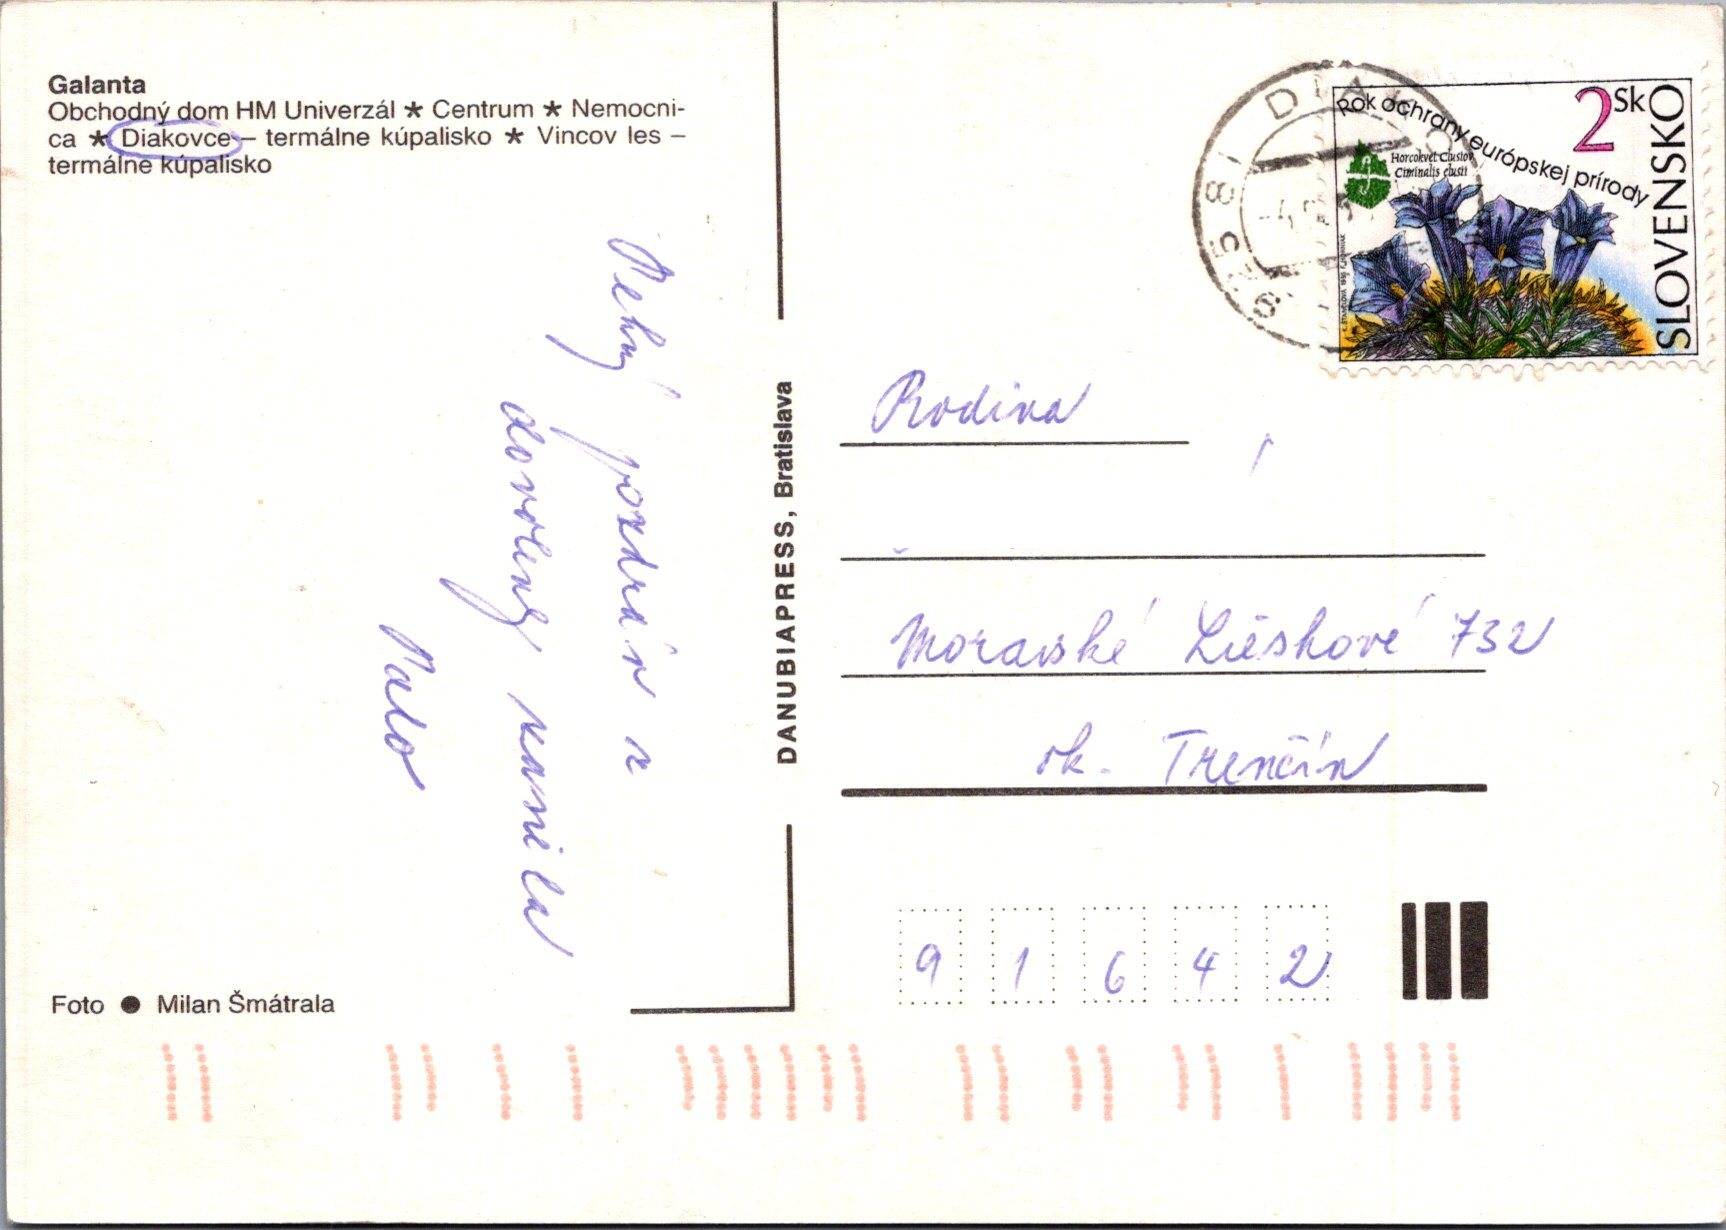 Galanta
Obchodný dom HM Univerzál ★ Centrum ★ Nemocni-
ca ★ Diakovce – termálne kúpalisko ★ Vincov les –
termálne kúpalisko
Pekný pozdrav z
dovolenky zasiela
Palo
Foto ● Milan Šmátrala
DANUBIAPRESS, Bratislava
925 81 DIAKO
Rok ochrany európskej prírody
2 Sk
SLOVENSKO
Horcokvet Clusiov
Ciminalis clusii
Rodina
Moravské Lieskové 732
ok. Trenčín
9 1 6 4 2